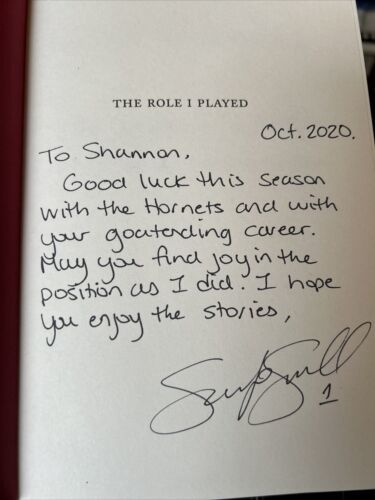 THE ROLE I PLAYED
Oct. 2020.
To Shannon,
Good luck this season
with the Hornets and with
your goaltending career.
May you find joy in the
position as I did. I hope
you enjoy the stories,
1